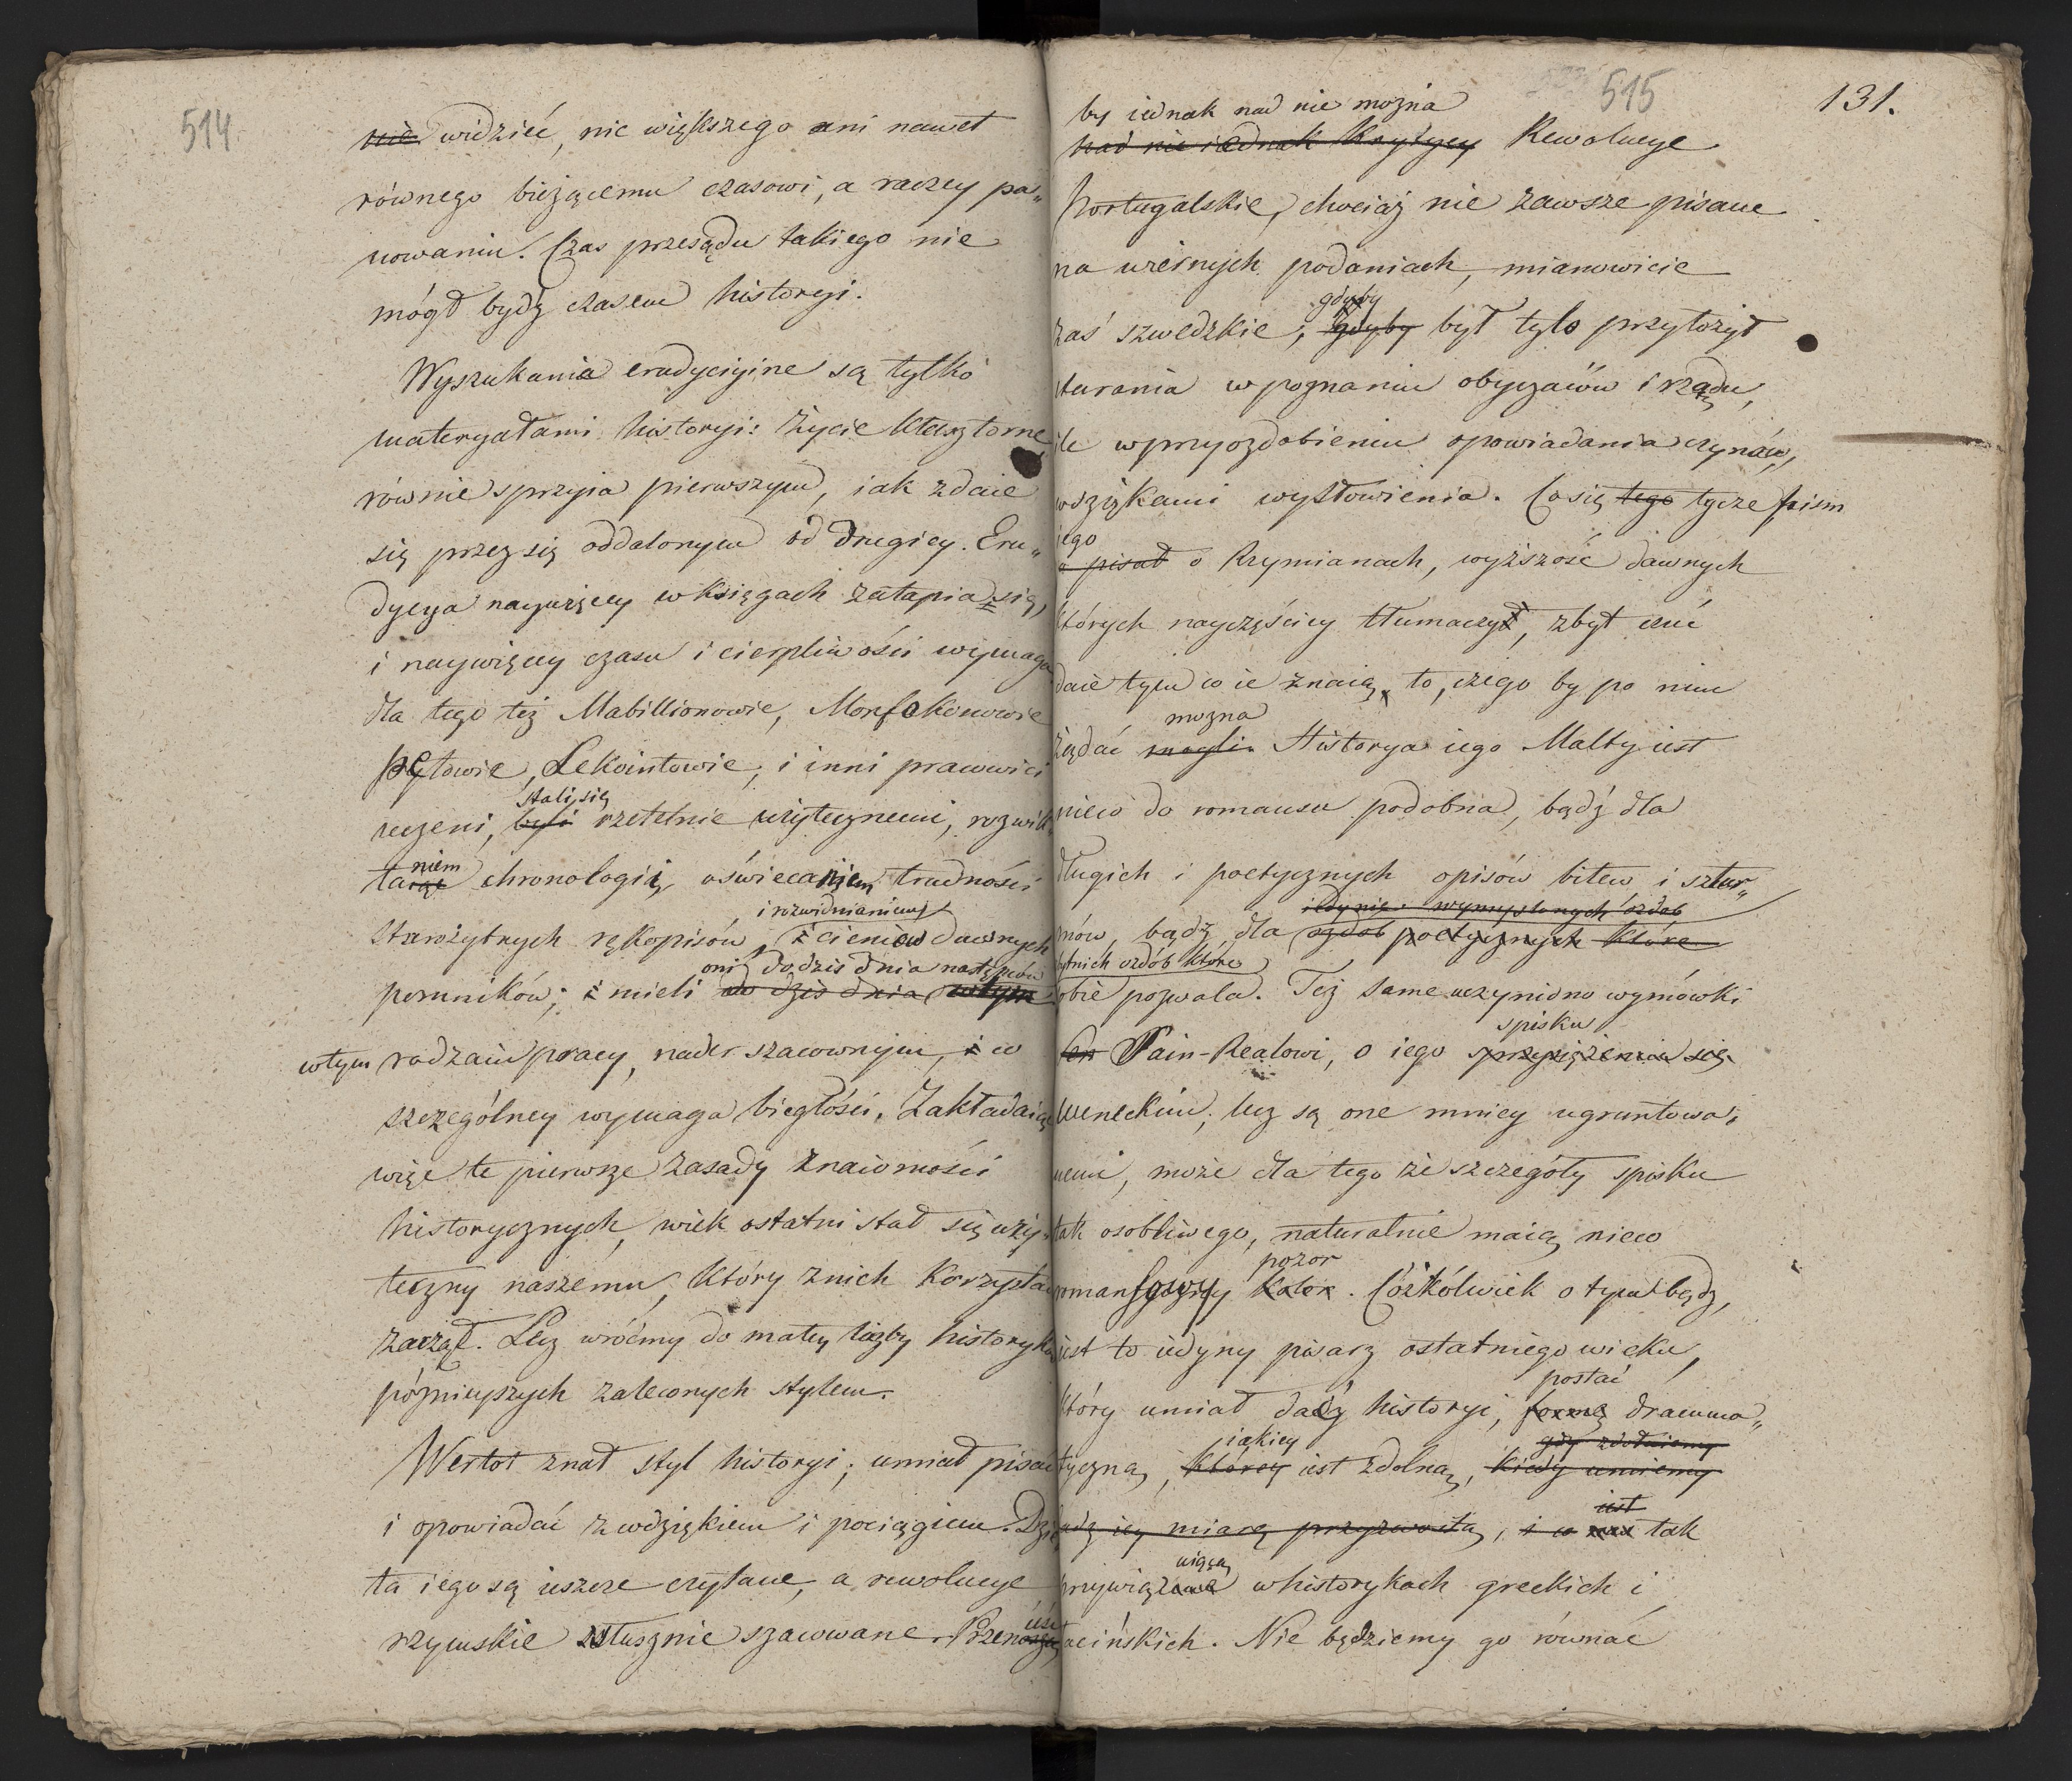 514.
nie widzieć, nic większego ani nawet
równego bieżącemu czasowi, a raczey pa„
nowaniu. Czas przesądu takiego nie
mógł bydź czasem historyi.
Wyszukania erudycyine są tylko
materyałami historyi: życie klasztorne
równie sprzyia pierwszym, iak zdaie
się przez się oddalonym od drugiey. Eru„
dycya naywięcey w księgach zatapia się,
i naywięcey czasu i cierpliwości wymaga
dla tego też Mabillionowie, Monfokonowie
Petowie, Lekointowie, i inni prawowici
stali się
uczeni, byli rzetelnie użytecznemi, rozwik„
niem
taiąc chronologii, oświecaniem trudności
i rozwidnianiem
starożytnych rękopisów, i cieniów dawnych
oni do dziś dnia następców
pomników; i mieli do dziś dnia w tym
w tym rodzaiu pracy, nader szacownym, i co
szczególney wymaga biegłości. Zakładaiąc
więc te pierwsze zasady znaiomości
historycznych, wiek ostatni stał się uży„
teczny naszemu, który z nich korzystać
zaczął. Lecz wróćmy do małey liczby historyków
pózniejszych zaleconych stylem.
Wertot znał styl historyi; umiał pisać
i opowiadać z wdziękiem i pociągiem. Dzie„
ła iego są ieszcze czytane, a rewolucye
rzymskie słusznie szacowane.
515 131.
by iednak nad nie można
nad nie iednak krytycy Rewolucye
Portugalskie, chociaż nie zawsze pisane
na wiernych podaniach, mianowicie
gdyby
zaś szwedzkie, gdyby był tylo przyłożył
starania w poznaniu obyczaiów i rządu,
ile w przyozdobieniu opowiadania czynów,
wdziękami wysłowienia. Co się tego tycze pism
iego
a pisał o Rzymianach, wyższość dawnych
których nayczęściey tłumaczył, zbyt czuć
daie tym co ie znaią, to, czego by po nim
można
żądać mogli. Historya iego Malty iest
nieco do romansu podobna, bądź dla
długich i poetycznych opisów bitew i sztur„
iedynie wymyslonych ozdób
mów, bądź dla ozdób poetycznych które
bytnich ozdób które
sobie pozwala. Też same uczyniono wymówki
spisku
Sain-Realowi, o iego sprzysiężeniu się
Weneckim; lecz są one mniey ugruntowa„
nemi, może dla tego że szczegóły spisku
tak osobliwego, naturalnie maią nieco
pozor
romansowy kolor. Cóżkolwiek o tym bądź,
iest to iedyny pisarz ostatniego wieku,
postać
który umiał dadź historyi, formę dramma„
iakiey gdy zdołniemy
tyczną, którey iest zdolną, kiedy umiemy
iest
dadź iey miarę przyzwoitą, i co nas tak
przywięzuie w historykach greckich i
łacińskich. Nie będziemy go równać